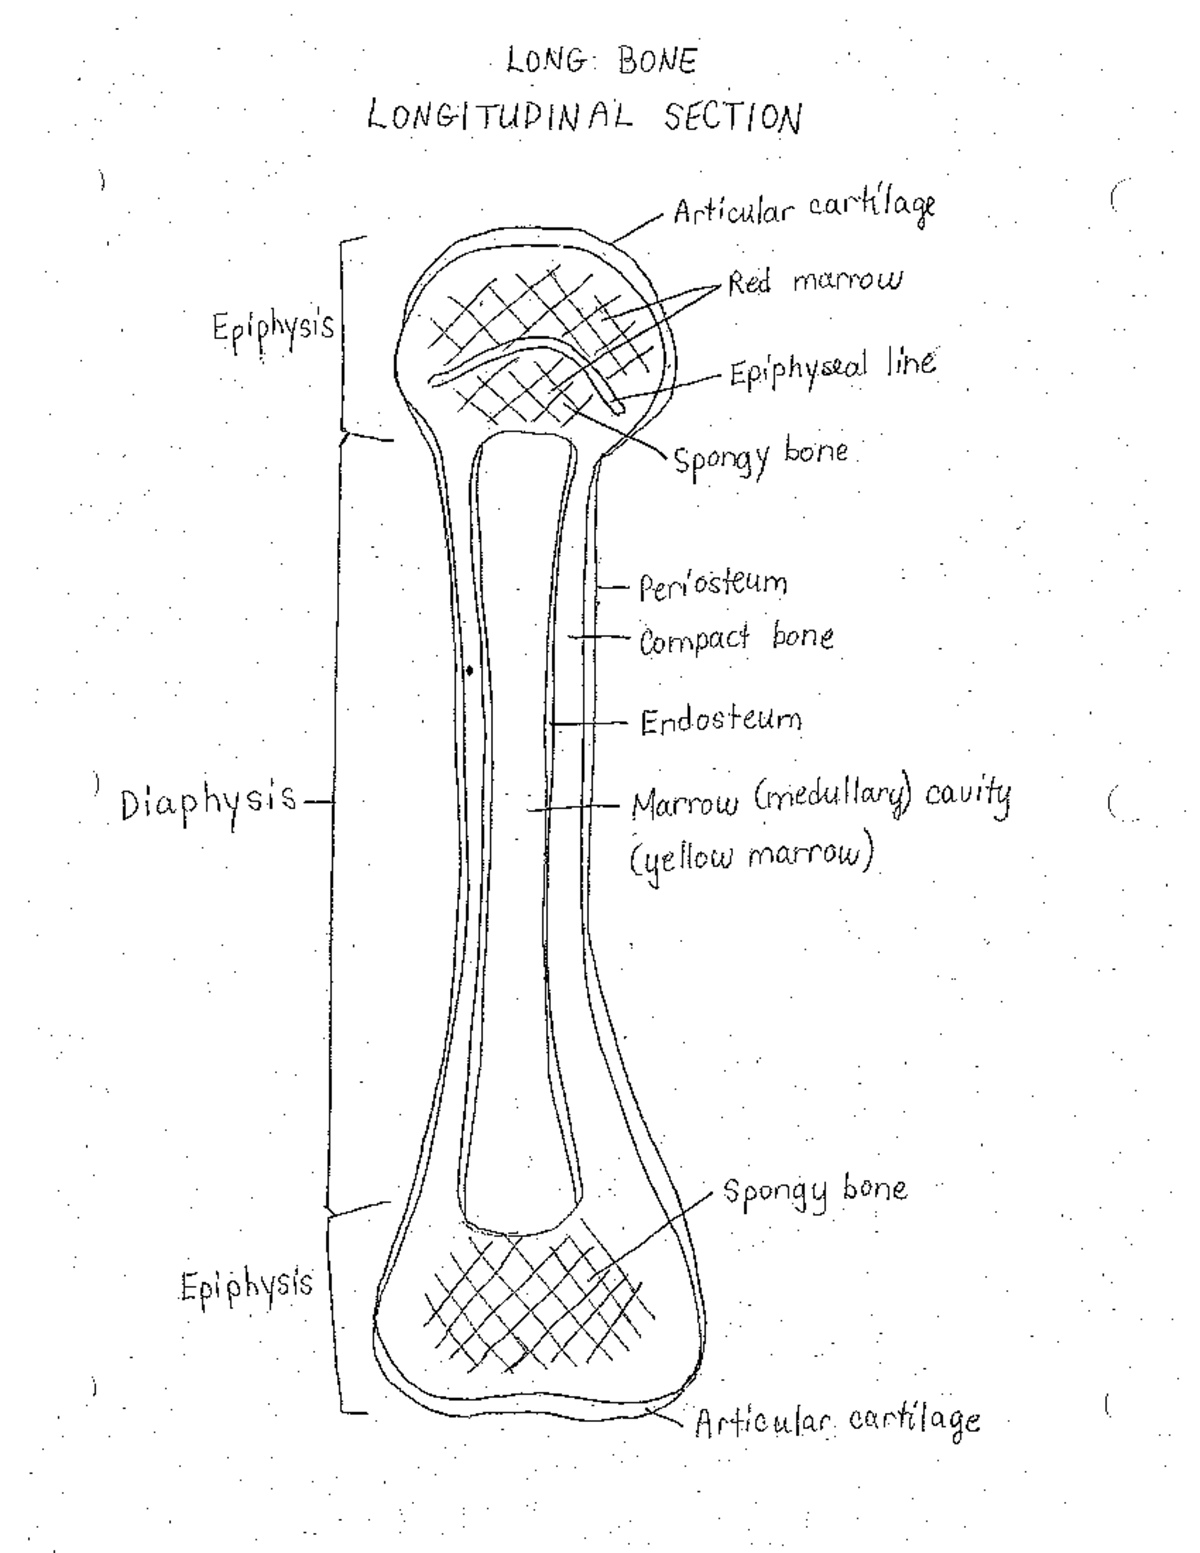 LONG BONE
LONGITUDINAL SECTION
Articular cartilage
Red marrow
Epiphysis
Epiphyseal line
Spongy bone
Periosteum
Compact bone
Endosteum
Diaphysis
Marrow (medullary) cavity
(yellow marrow)
Spongy bone
Epiphysis
Articular cartilage